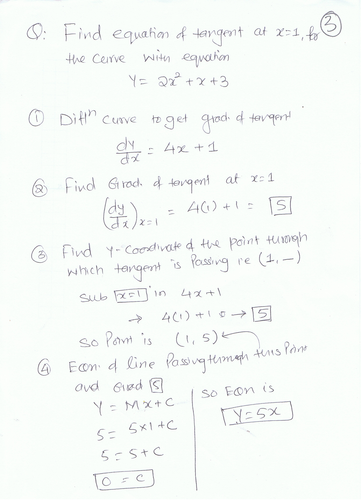 Q: Find equation of tangent at x=1, for ③
the curve with equation
Y = 2x² + x + 3
① Diffⁿ curve to get grad. of tangent
dy/dx = 4x + 1
② Find Grad. of tangent at x=1
(dy/dx)x=1 = 4(1) + 1 = 5
③ Find Y-Coordinate of the point through
which tangent is Passing ie (1, –)
Sub x=1 in 4x+1
→ 4(1) + 1 → 5
So Point is (1, 5)
④ Eqn. of line Passing through this Point
and Grad 5
Y = Mx + C
5 = 5x1 + C
5 = 5 + C
0 = C
So Eqn is
Y = 5x